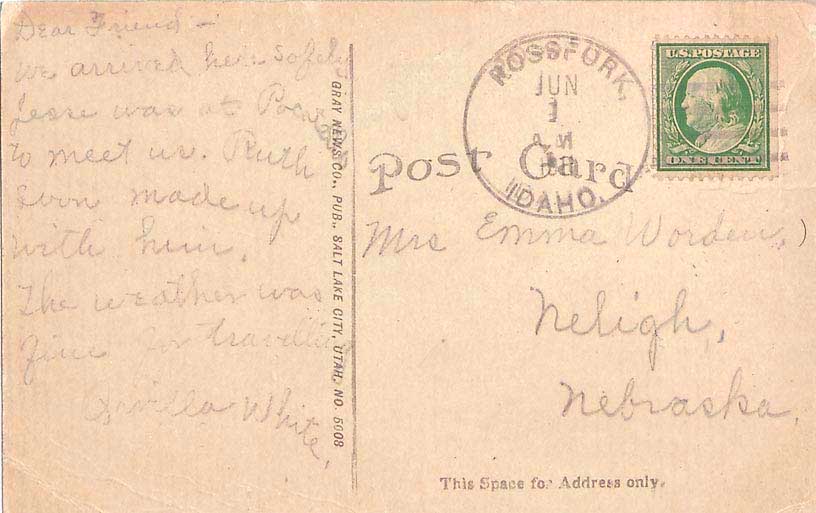 Dear Friend —
We arrived here safely
Jesse was at
to meet us. Ruth
soon made up
with him.
The weather was
fine for travelling
White,
GRAY NEWS CO., PUB., SALT LAKE CITY, UTAH, NO. 5008
ROSSFORK,
JUN
1
A M
IDAHO.
U.S. POSTAGE
ONE CENT
Post Card
Mrs Emma Worden,
Neligh,
Nebraska.
This Space for Address only.